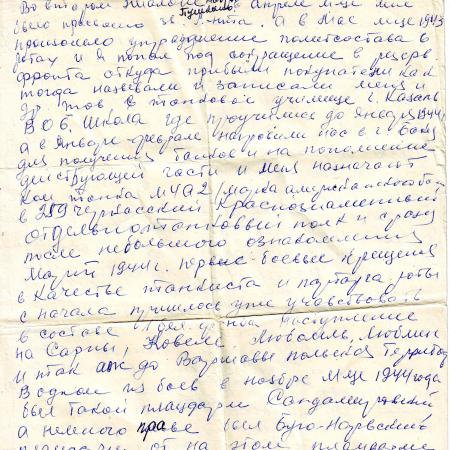 Во втором эшалоне в Апреле м-це мне
было присвоено зв. л-нта. а в Мае м-це 1943
произошло упразднение политсостава в
ротах и я попал под сокращение в резерв
фронта откуда прибыли покупатели как
тогда называли и записали меня и
др. тов. в танковое училище г. Казань
В О Б. Школа где проучился до Января 1944
а в Январе-феврале направили нас в г. Баку
для получения танков и на пополнение
действующей части и меня назначают
ком танка М4А2 /марка американского
в 259 Черкасский Краснознаменный
отдельно танковый полк и сразу
после небольшого ознакомления
Март 1944 г. первые боевые крещения
в качестве танкиста и парторга роты
с начала пришлось уже учавствовать
в составе 1 бел. фронта наступление
на Сарны, Ковель Любомль, Люблин
и так аж до Варшавы польской
В одном из боев в ноябре м-це 1944 года
был такой плацдарм Сандомирский
а немного праве был Буго-Наревский
плацдарм от на этом плацдарме